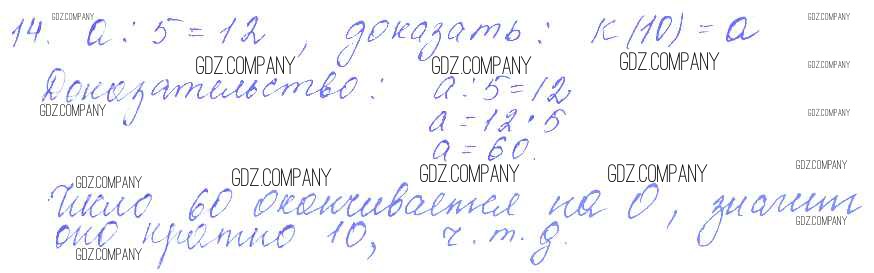 14. a : 5 = 12, доказать: К(10) = a
Доказательство: a : 5 = 12
a = 12 · 5
a = 60.
Число 60 оканчивается на 0, значит
оно кратно 10, ч.т.д.
GDZ.COMPANY GDZ.COMPANY
GDZ.COMPANY GDZ.COMPANY GDZ.COMPANY GDZ.COMPANY
GDZ.COMPANY GDZ.COMPANY
GDZ.COMPANY GDZ.COMPANY GDZ.COMPANY GDZ.COMPANY GDZ.COMPANY
GDZ.COMPANY
GDZ.COMPANY